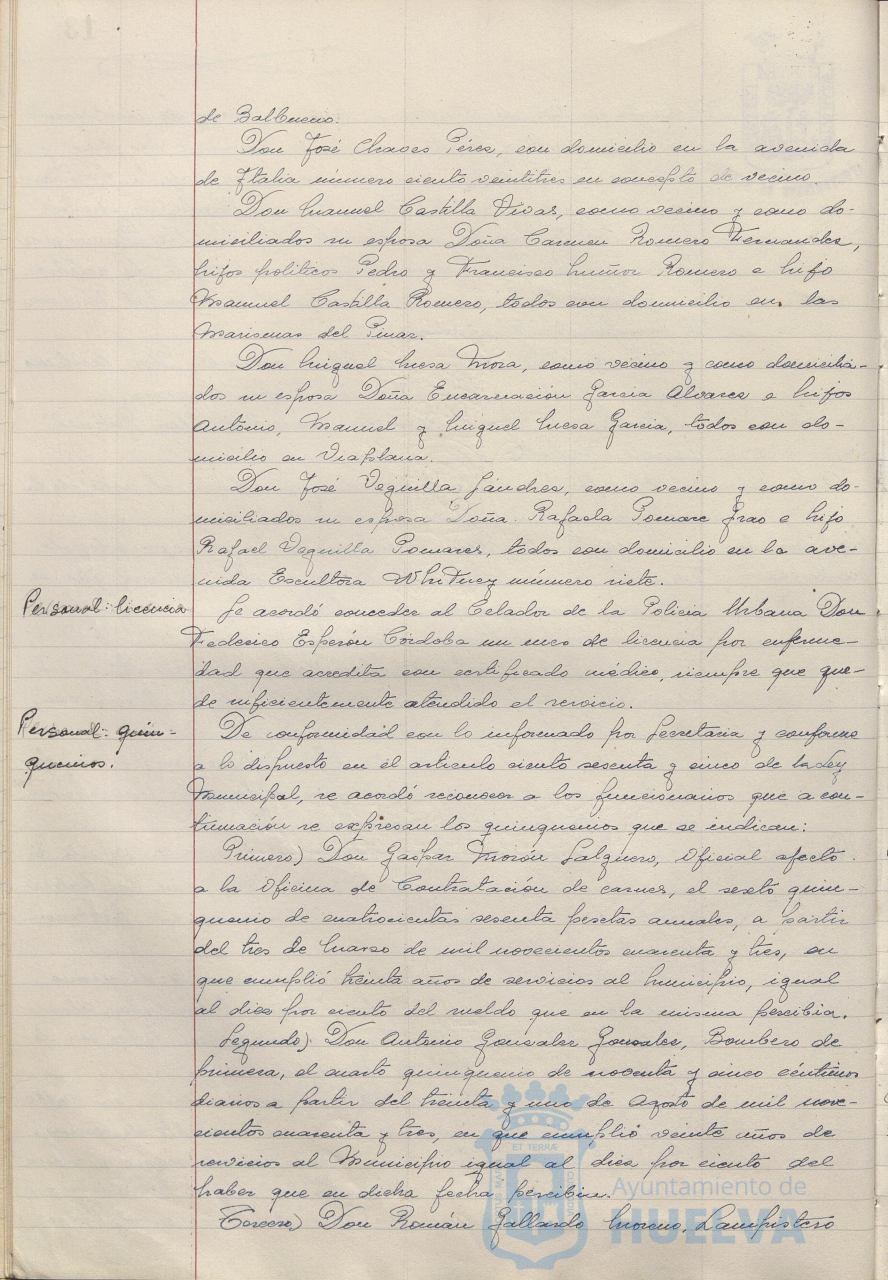 de Balbuena.
Don José Chaves Pérez, con domicilio en la avenida
de Italia número ciento veintitres en concepto de vecino.
Don Manuel Castilla Vivas, como vecino y como do-
miciliados su esposa Doña Carmen Romero Fernandez,
hijos políticos Pedro y Francisco Muñoz Romero e hijo
Manuel Castilla Romero, todos con domicilio en las
Marismas del Pinar.
Don Miguel Mesa Mora, como vecino y como domicilia-
dos su esposa Doña Encarnación Garcia Alvarez e hijos
Antonio, Manuel y Miguel Mesa Garcia, todos con do-
micilio en Viaplana.
Don José Veguilla Sándres, como vecino y como do-
miciliados su esposa Doña Rafaela Pomare Grao e hijo
Rafael Veguilla Pomares, todos con domicilio en la ave-
nida Escultora Whitney número siete.
Personal: licencia
Se acordó conceder al Celador de la Policia Urbana Don
Federico Esperón Córdoba un mes de licencia por enferme-
dad que acredita con certificado médico, siempre que que-
de suficientemente atendido el servicio.
Personal: quin-
quenios.
De conformidad con lo informado por Secretaria y conforme
a lo dispuesto en el articulo ciento sesenta y cinco de la Ley
Municipal, se acordó reconocer a los funcionarios que a con-
tinuación se expresan los quinquenios que se indican:
Primero) Don Gaspar Morón Salguero, Oficial afecto
a la Oficina de Contratación de carnes, el sexto quin-
quenio de cuatrocientas sesenta pesetas anuales, a partir
del tres de Marzo de mil novecientos cuarenta y tres, en
que cumplió treinta años de servicios al Municipio, igual
al diez por ciento del sueldo que en la misma percibia.
Segundo) Don Antonio Gonzalez Gonzalez, Bombero de
primera, el cuarto quinquenio de noventa y cinco céntimos
diarios a partir del treinta y uno de Agosto de mil nove-
cientos cuarenta y tres, en que cumplió veinte años de
servicios al Municipio igual al diez por ciento del
haber que en dicha fecha percibia.
Tercero) Don Román Gallardo Moreno, Lampistero
Ayuntamiento de
HUELVA